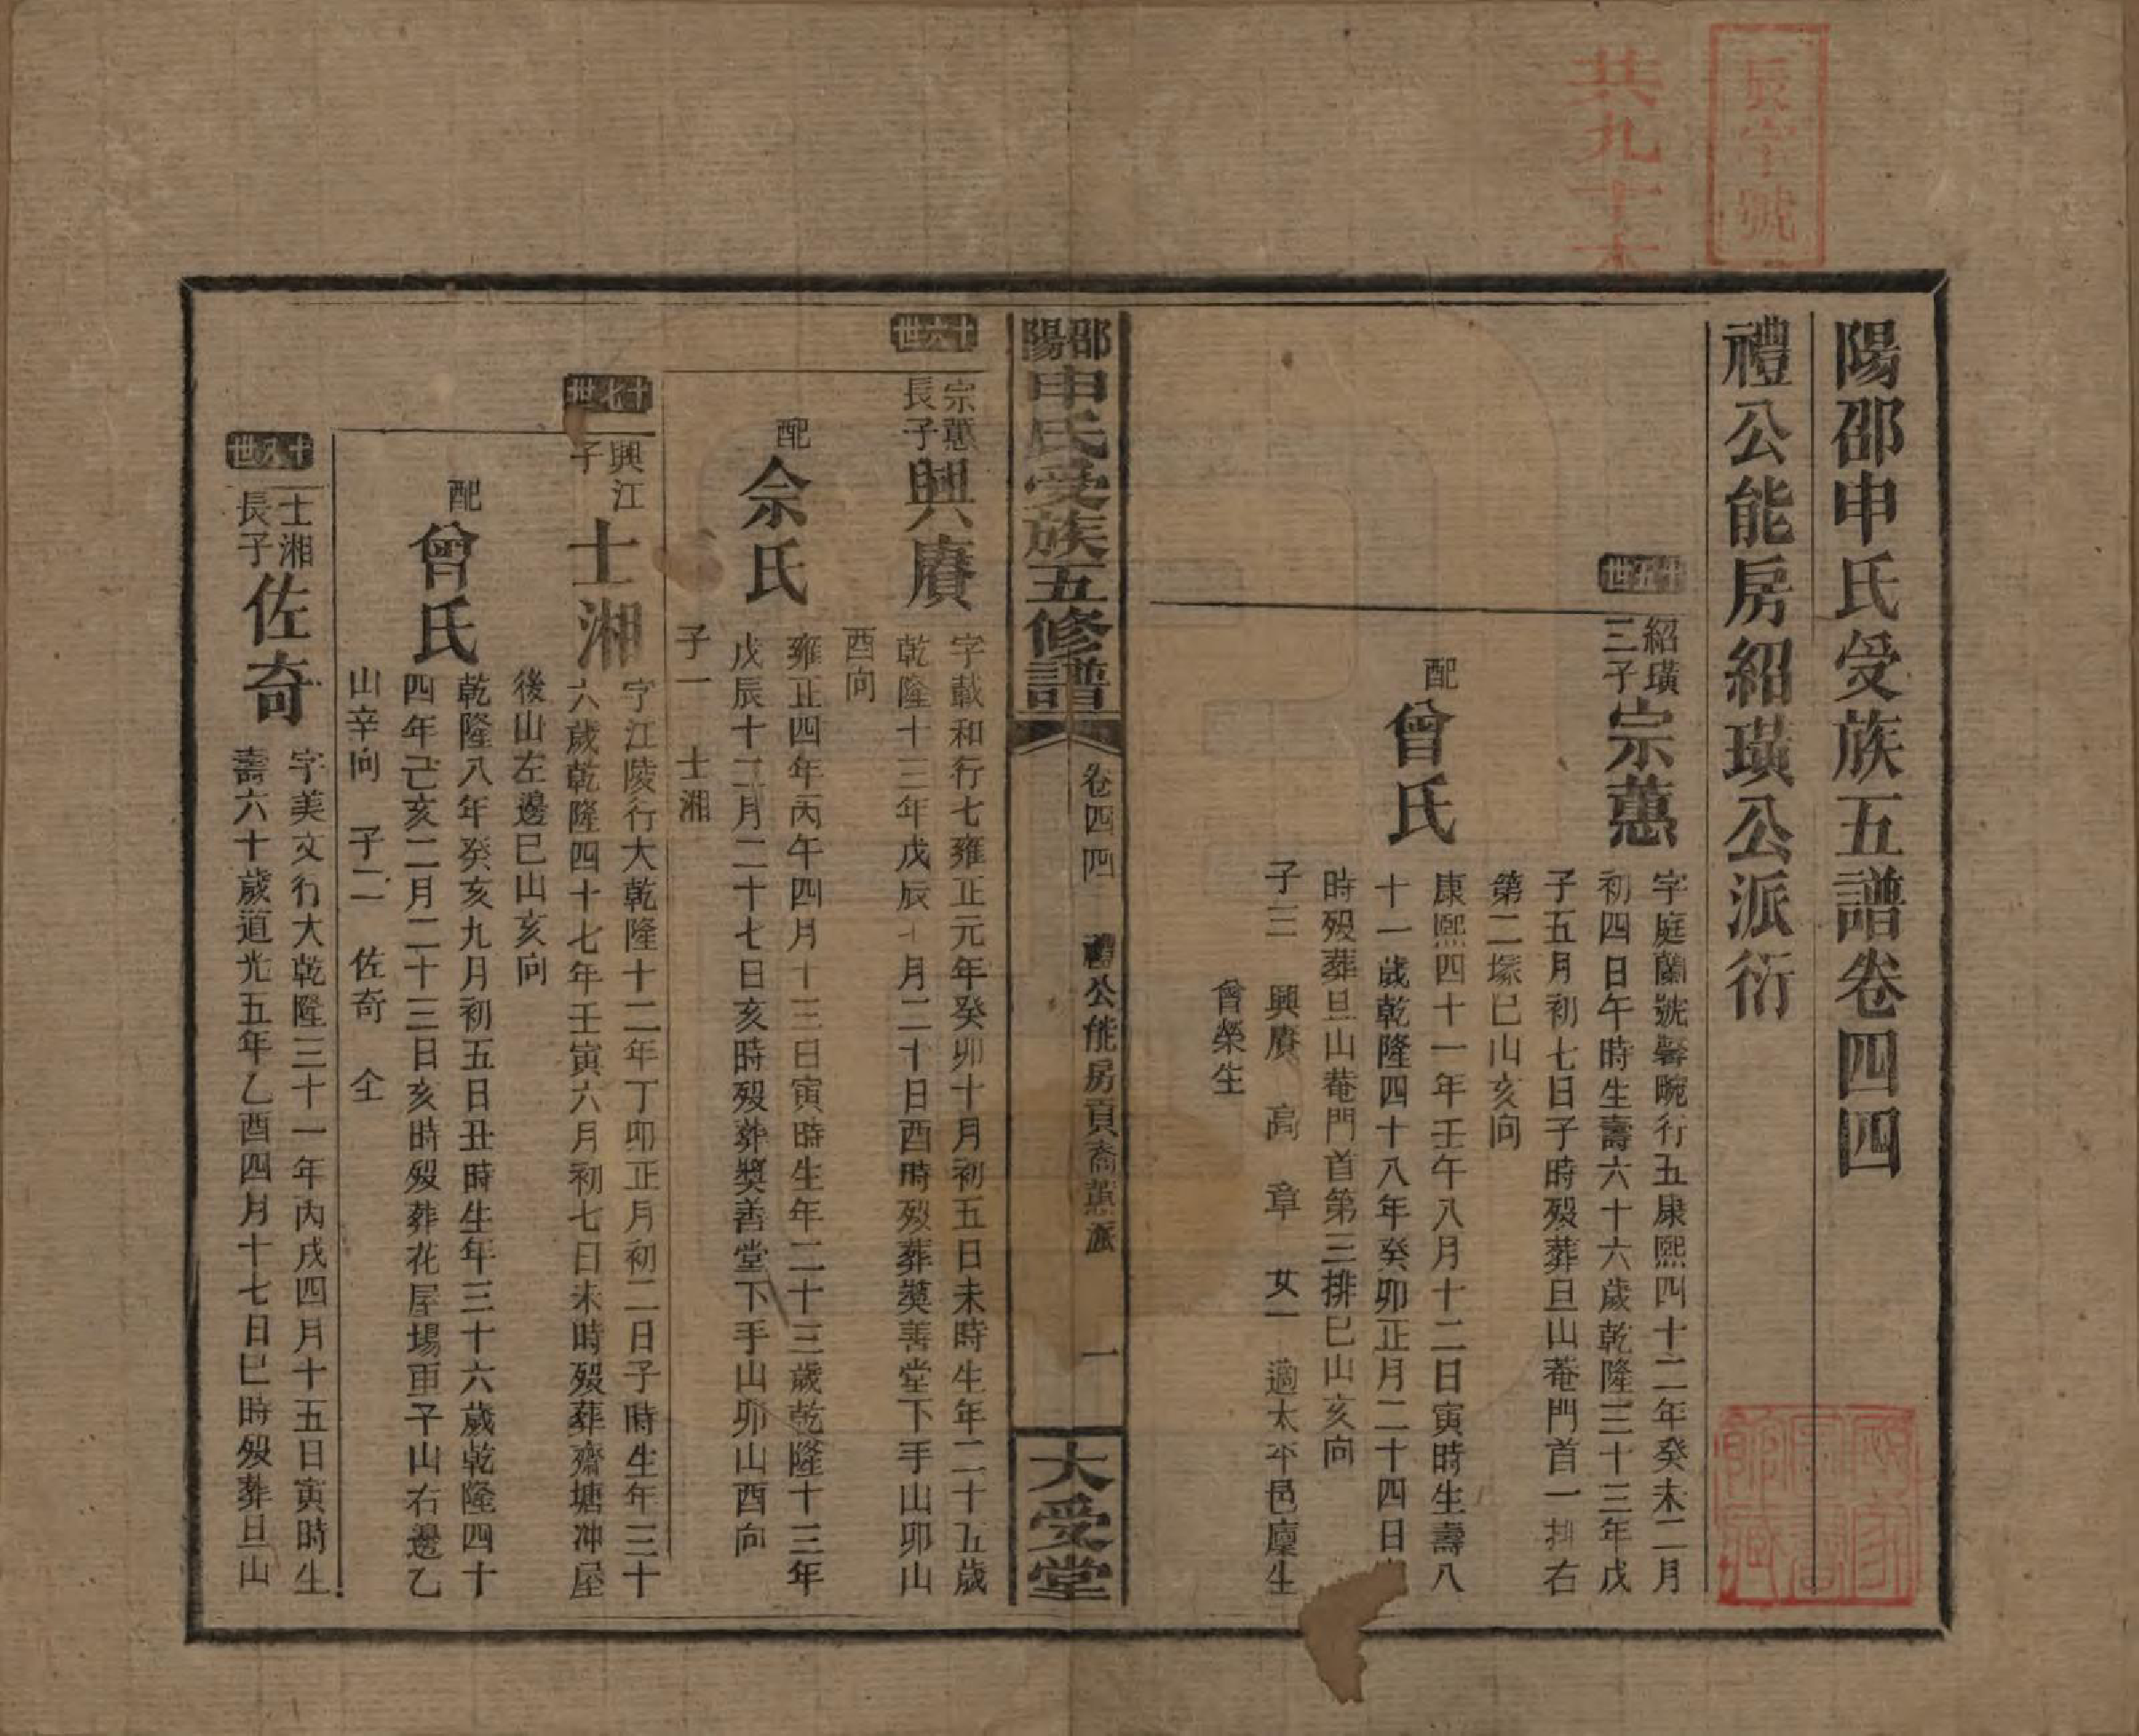 辰字號
共九十本
陽邵申氏受族五譜卷四四
禮公能房紹璜公派衍
十五世
紹璜
三子
宗蕙
字庭蘭號馨畹行五康熙四十二年癸未二月
初四日午時生壽六十六歲乾隆三十三年戊
子五月初七日子時歿葬旦山菴門首一排右
第二塚巳山亥向
配
曾氏
康熙四十一年壬午八月十二日寅時生壽八
十一歲乾隆四十八年癸卯正月二十四日
時歿葬旦山菴門首第三排巳山亥向
子三 興賡 高 章 女一 適太平邑廩生
曾榮生
邵陽申氏受族五修譜
卷四四
禮公能房貢喬蕙派
一
大受堂
十六世
宗蕙
長子
興賡
字載和行七雍正元年癸卯十月初五日未時生年二十五歲
乾隆十三年戊辰十月二十日酉時歿葬獎善堂下手山卯山
酉向
配
佘氏
雍正四年丙午四月十三日寅時生年二十三歲乾隆十三年
戊辰十二月二十七日亥時歿葬獎善堂下手山卯山酉向
子一 士湘
十七世
興江
子
士湘
字江陵行大乾隆十二年丁卯正月初二日子時生年三十
六歲乾隆四十七年壬寅六月初七日未時歿葬齋塘冲屋
後山左邊巳山亥向
配
曾氏
乾隆八年癸亥九月初五日丑時生年三十六歲乾隆四十
四年己亥二月二十三日亥時歿葬花屋場車子山右邊乙
山辛向 子二 佐奇 仝
十八世
士湘
長子
佐奇
字美文行大乾隆三十一年丙戌四月十五日寅時生
壽六十歲道光五年乙酉四月十七日巳時歿葬旦山